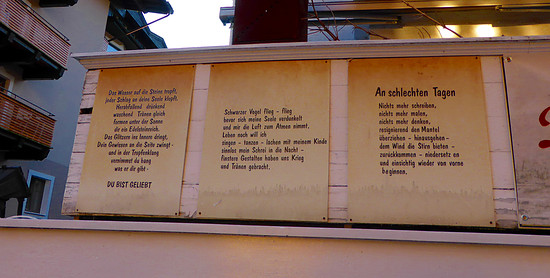 Das Wasser auf die Steine tropft,
jeder Schlag an deine Seele klopft.
Herabfallend drückend
waschend Tränen gleich
formen unter der Sonne
dir ein Edelsteinreich.
Das Glitzern ins Innere dringt,
Dein Gewissen an die Seite zwingt -
und in der Tropfenklang
vernimmst du bang
was er dir gibt -
DU BIST GELIEBT
Schwarzer Vogel flieg - flieg
bevor sich meine Seele verdunkelt
und mir die Luft zum Atmen nimmt.
Leben noch will ich
singen - tanzen - lachen mit meinem Kinde
ziellos mein Schrei in die Nacht -
finstere Gestalten haben uns Krieg
und Tränen gebracht.
An schlechten Tagen
Nichts mehr schreiben,
nichts mehr malen,
nichts mehr denken,
resignierend den Mantel
überziehen - hinausgehen -
dem Wind die Stirn bieten -
zurückkommen - niedersetzen
und einsichtig wieder von vorne
beginnen.